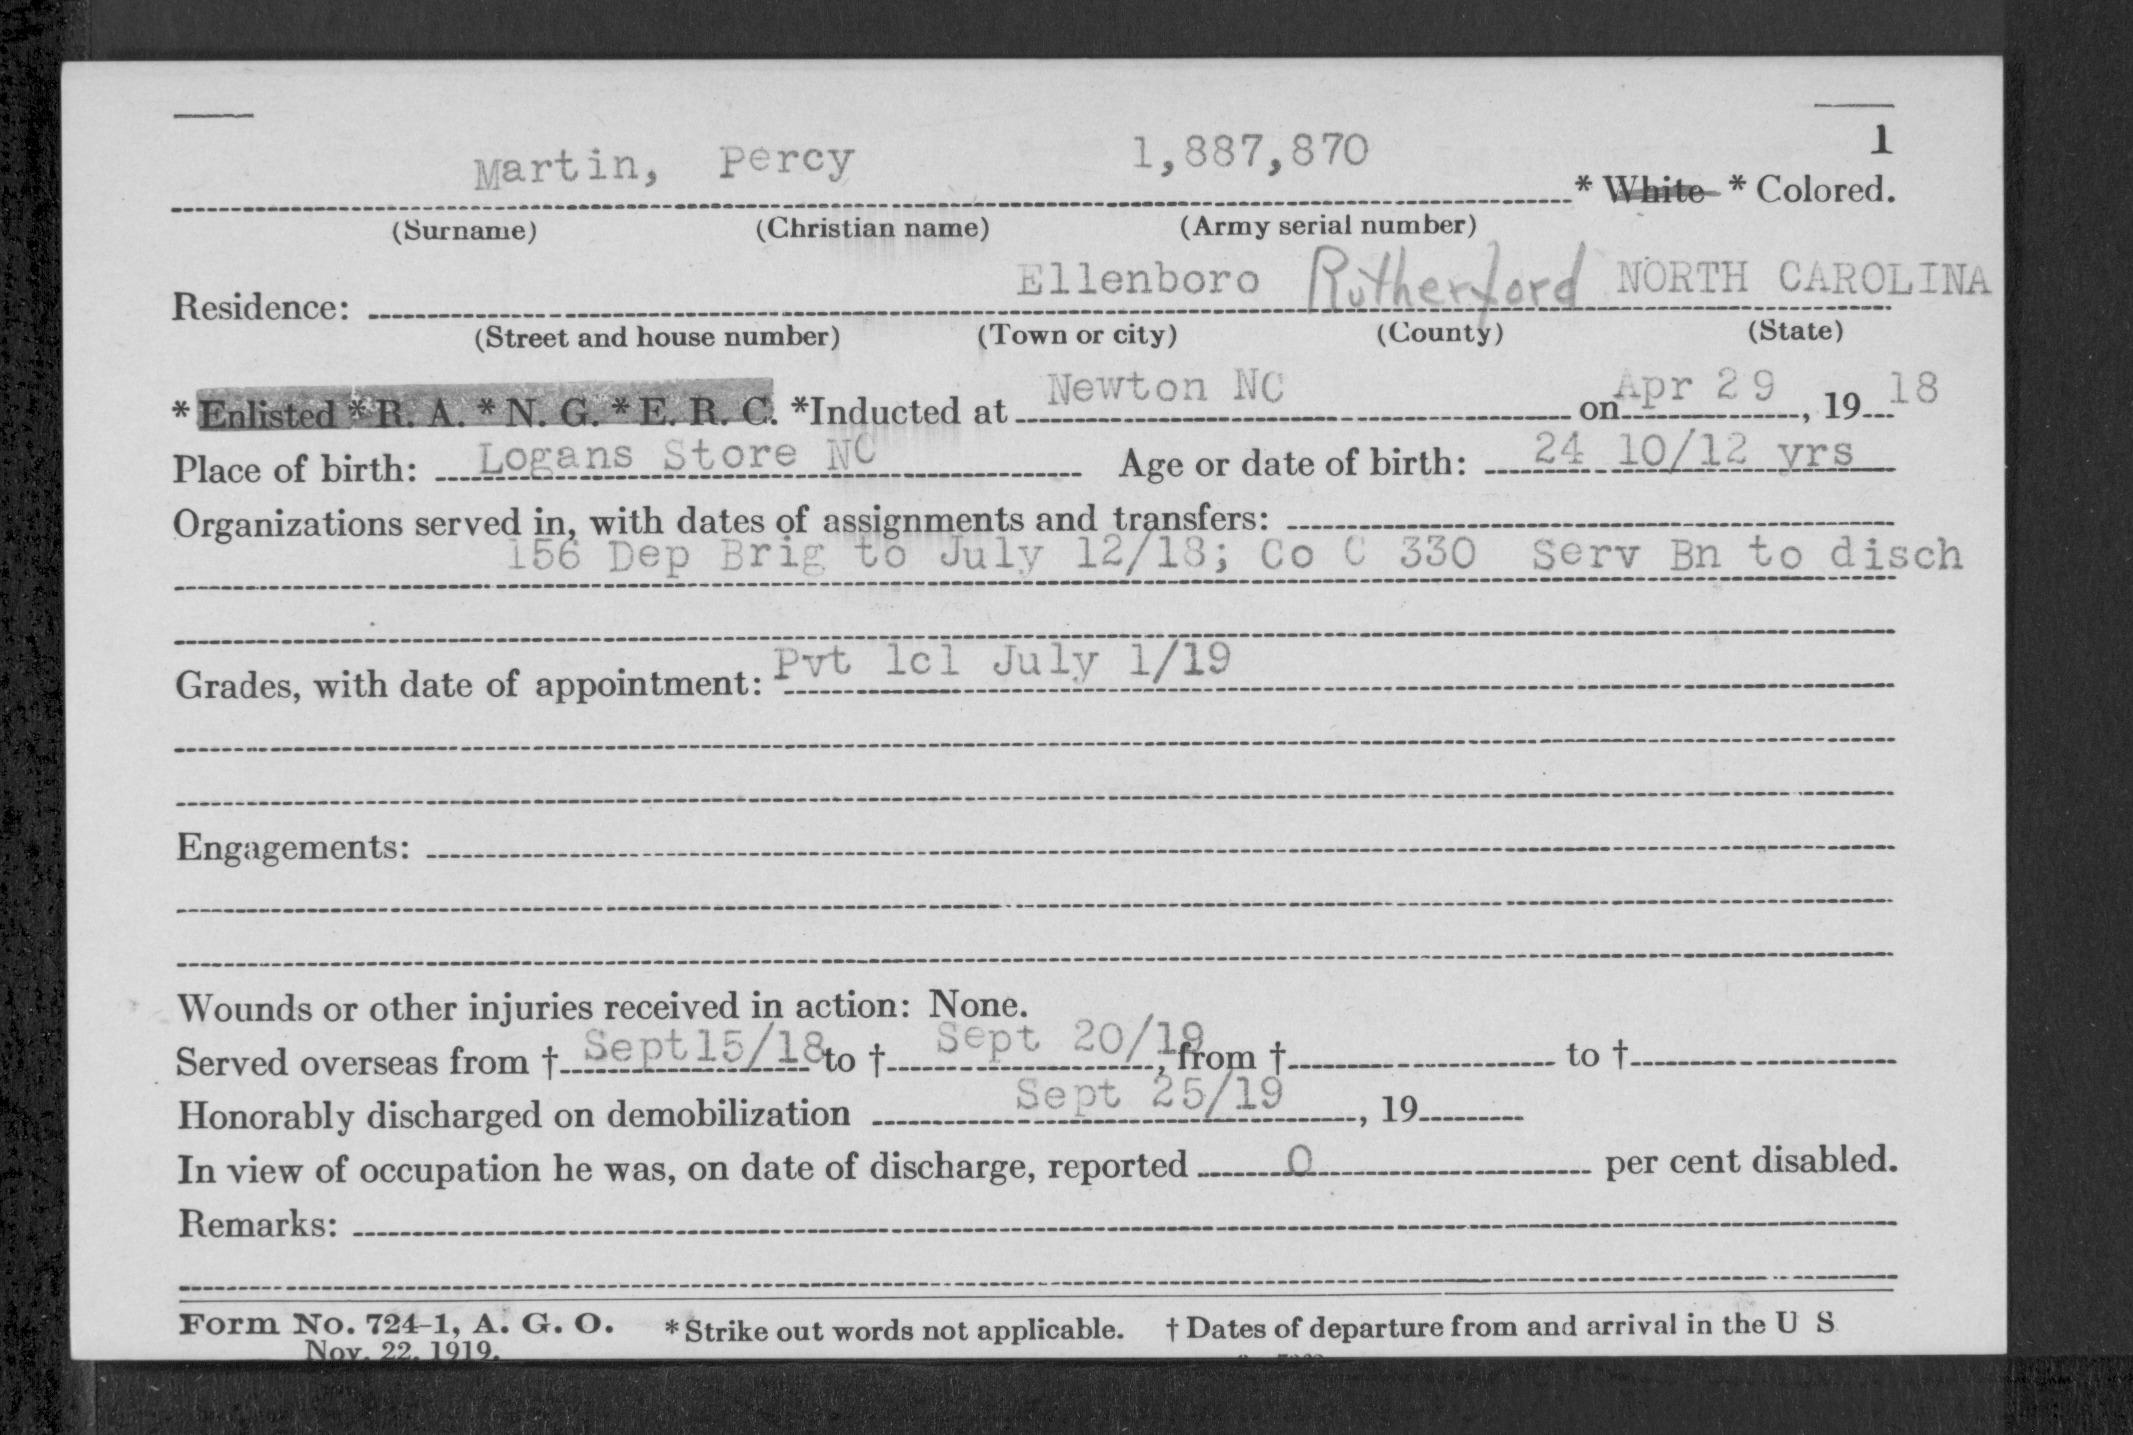 1
Martin, Percy 1,887,870 * White * Colored.
(Surname) (Christian name) (Army serial number)
Residence: Ellenboro Rutherford NORTH CAROLINA
(Street and house number) (Town or city) (County) (State)
* Enlisted * R. A. * N. G. * E. R. C. *Inducted at Newton NC on Apr 29, 19 18
Place of birth: Logans Store NC Age or date of birth: 24 10/12 yrs
Organizations served in, with dates of assignments and transfers:
156 Dep Brig to July 12/18; Co C 330 Serv Bn to disch
Grades, with date of appointment: Pvt 1cl July 1/19
Engagements:
Wounds or other injuries received in action: None.
Served overseas from † Sept 15/18 to † Sept 20/19, from † to †
Honorably discharged on demobilization Sept 25/19, 19
In view of occupation he was, on date of discharge, reported 0 per cent disabled.
Remarks:
Form No. 724-1, A. G. O. * Strike out words not applicable. † Dates of departure from and arrival in the U S
Nov. 22, 1919.